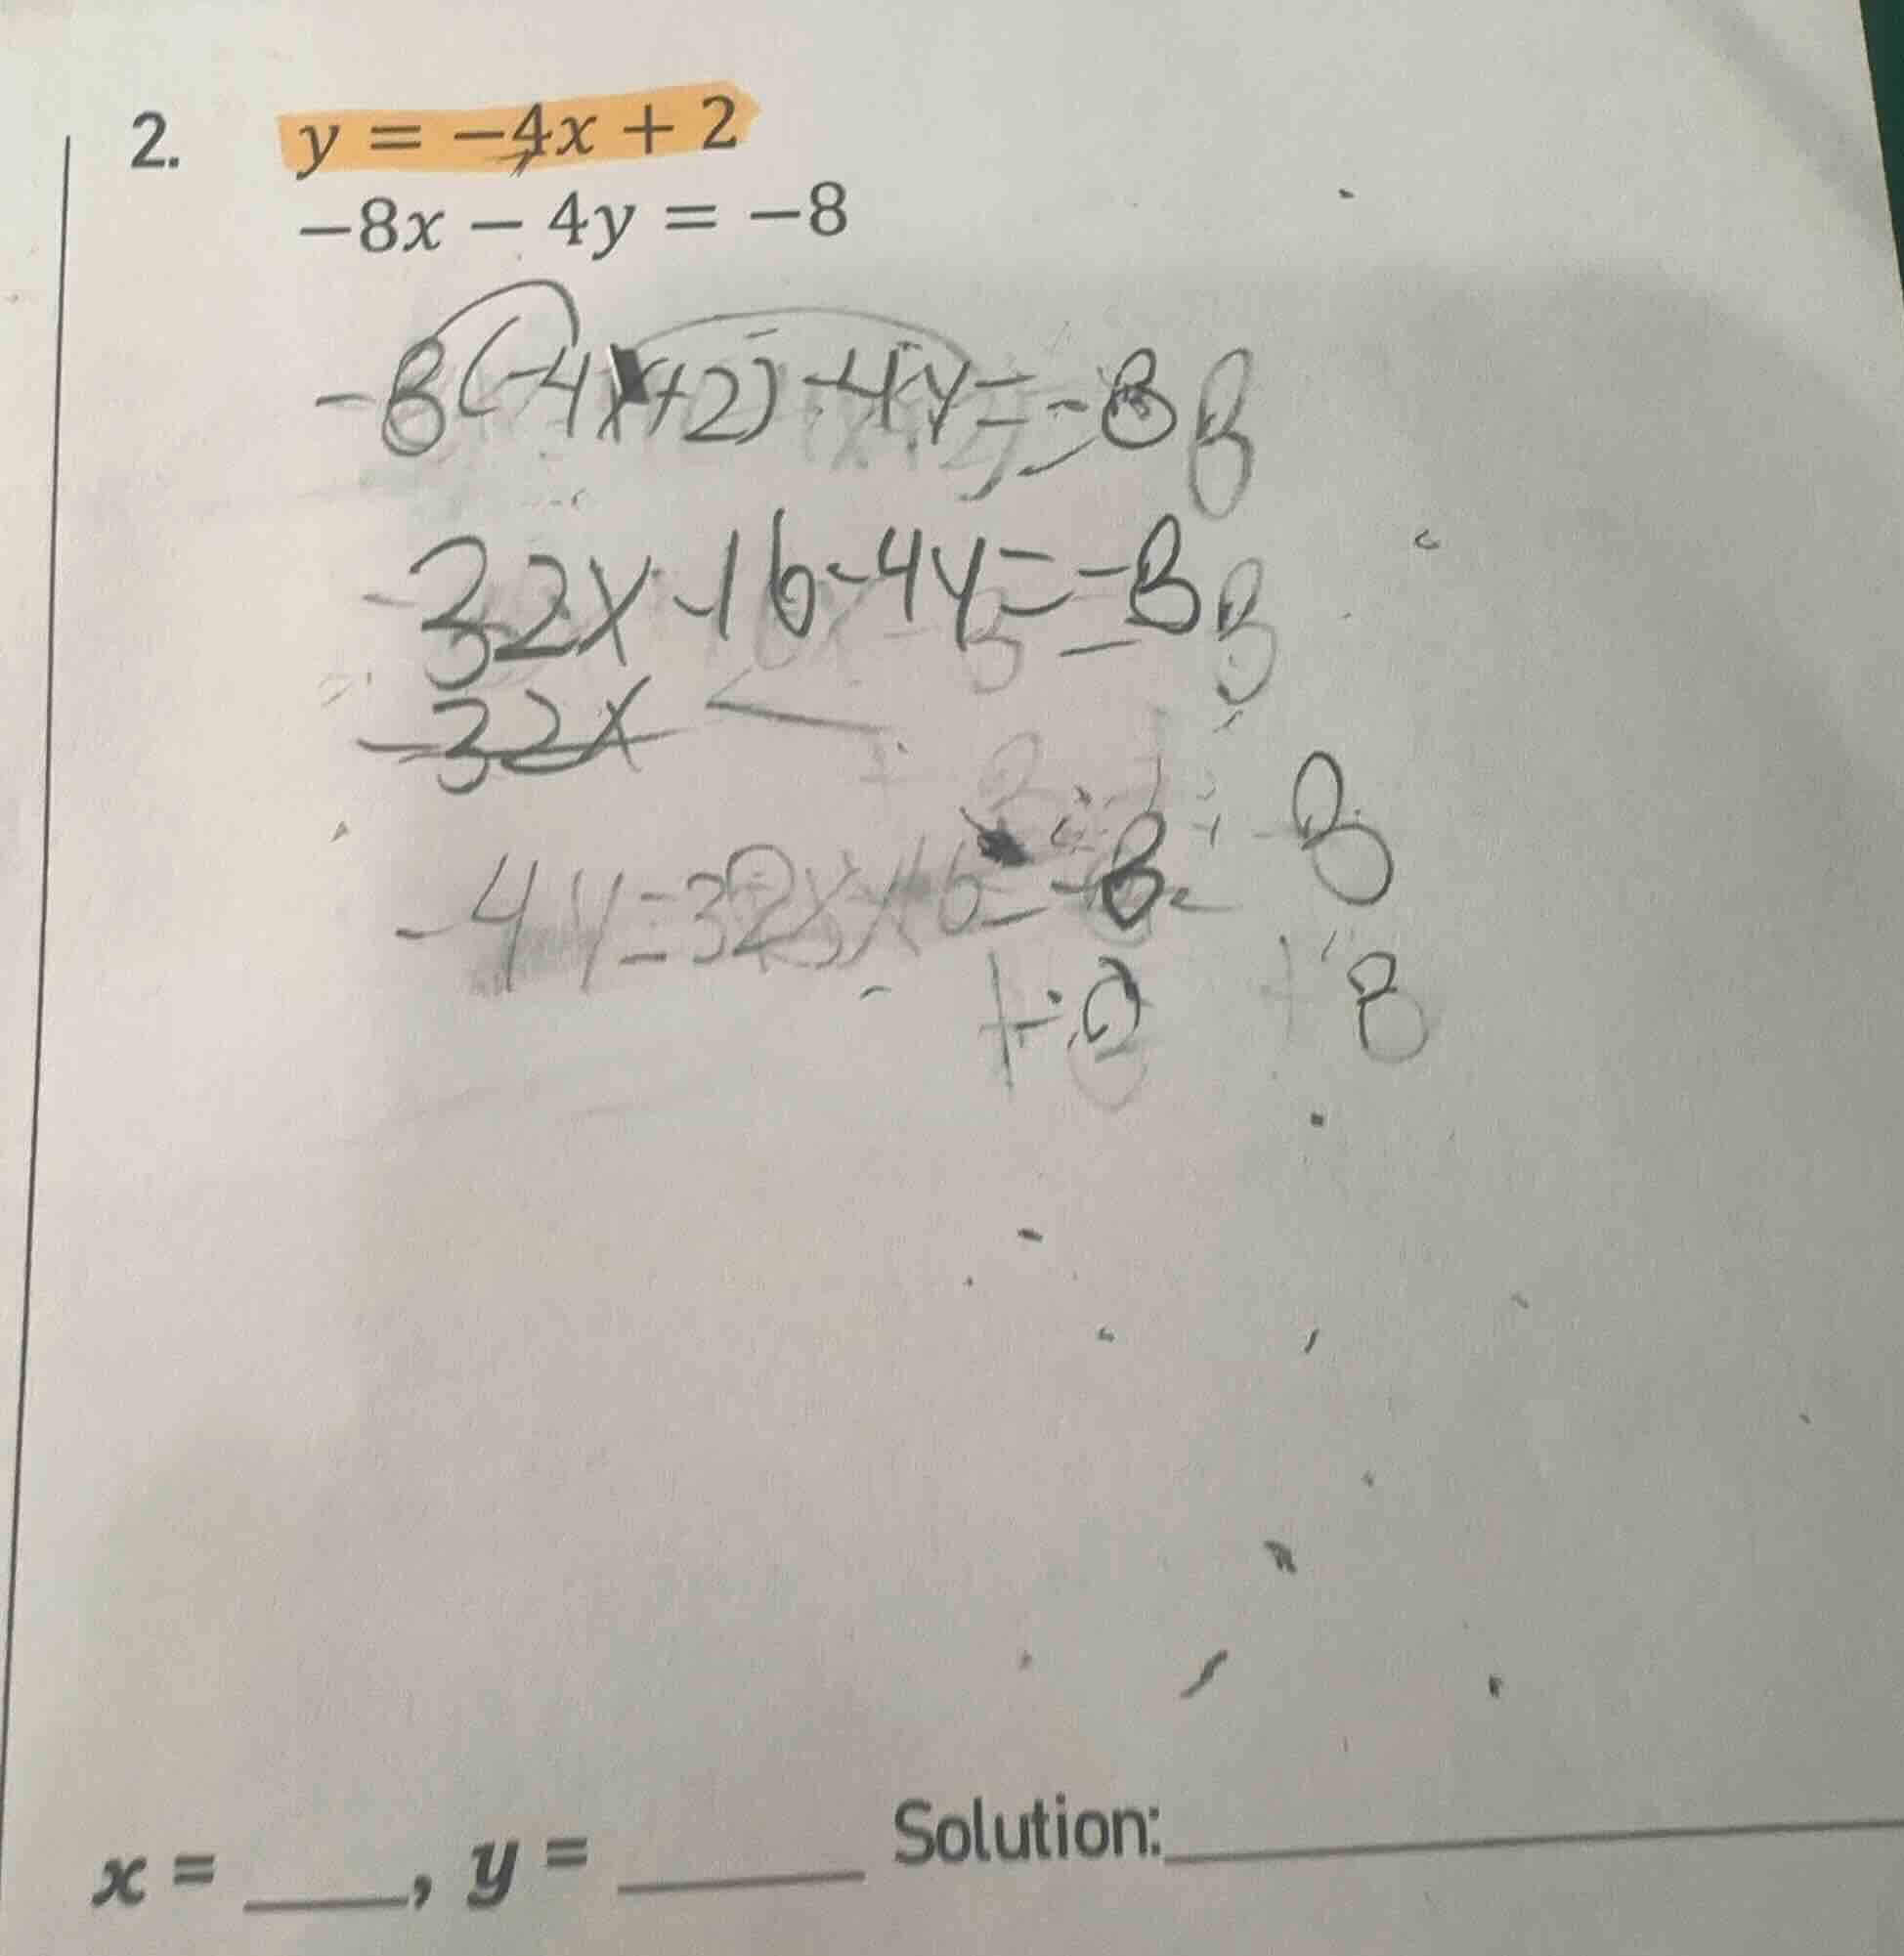 2. y = −4x + 2
−8x − 4y = −8
-8(-4x+2) -4y = -8 8
32x -16 -4y = -8 8
-32x
-4y = 32x 16 = -8 -8
+ 8
x = ____, y = ____ Solution:____